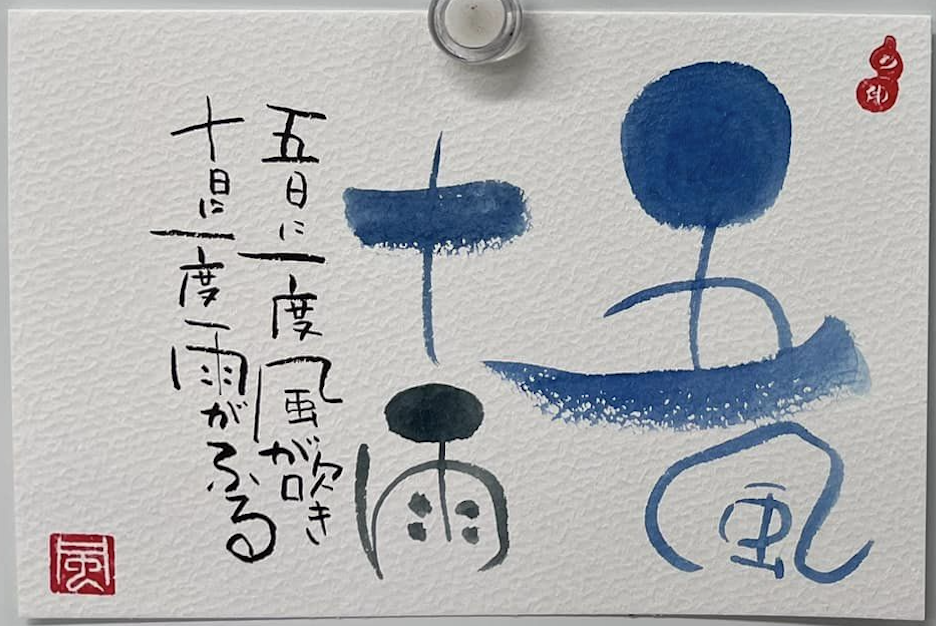 五風
十雨
五日に一度風が吹き
十日に一度雨がふる
風